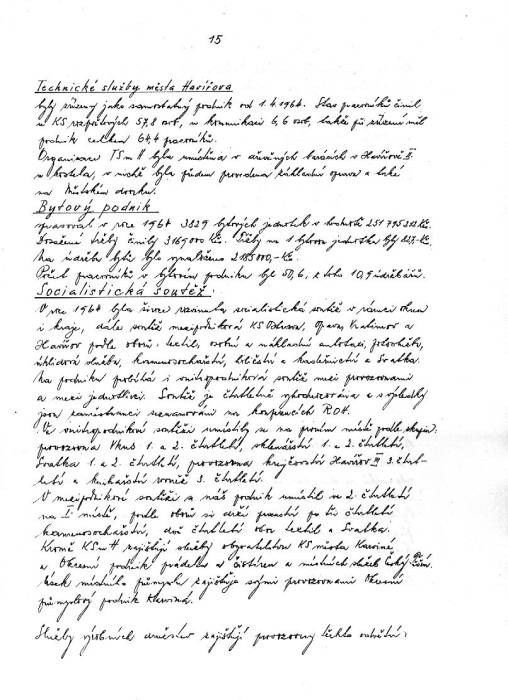 15
Technické služby města Havířova
byly zřízeny jako samostatný podnik od 1.4.1964. Stav pracovníků činil
u KS rozpočtových 57,8 osob, u komunikací 6,6 osob, takže při zřízení měl
podnik celkem 64,4 pracovníků.
Organisace TSmH byla umístěna v dřevěných barácích v Havířově II
u kostela, v nichž byla předem provedena základní oprava a také
na Městském dvorku.
Bytový podnik
spravoval v roce 1964 3829 bytových jednotek v hodnotě 251 795 212 Kčs.
Dosažené tržby činily 3169 000 Kčs. Tržby na 1 bytovou jednotku byly 827,- Kčs
Na údržbu bytů bylo vynaloženo 2 185 000,- Kčs.
Počet pracovníků v bytovém podniku byl 50,6, z toho 10,9 údržbářů.
Socialistická soutěž:
V roce 1964 byla široce rozvinuta socialistická soutěž v rámci okresu
i kraje, dále soutěž mezipodniková KS Ostrava, Opava, Vratimov a
Havířov podle oborů: textil, osobní a nákladní autotaxi, fotosběrky,
úklidová služba, kamenosochařství, holičství a kadeřnictví a Svatka.
Na podniku probíhá i vnitropodniková soutěž mezi provozovnami
a mezi jednotlivci. Soutěž je čtvrtletně vyhodnocována a s výsledky
jsou zaměstnanci seznamováni na konferencích ROH.
Ve vnitropodnikové soutěži umístily se na prvním místě podle skupin:
provozovna Vkus 1. a 2. čtvrtletí, sklenářství 1. a 2. čtvrtletí,
Svatka 1. a 2. čtvrtletí, provozovna krejčovství Havířov III 3. čtvrt-
letí a kuchařství rovněž 3. čtvrtletí.
V mezipodnikové soutěži se náš podnik umístil ve 2. čtvrtletí
na I. místě, podle oborů si drží prvenství po tři čtvrtletí
kamenosochařství, dvě čtvrtletí obor textil a Svatka.
Kromě KSmH zajišťují služby obyvatelstvu KS města Karviné
a Okresní podnik prádelen a čistíren a místních služeb Český Těšín.
Úsek místního průmyslu zajišťuje svými provozovnami Okresní
průmyslový podnik Karviná.
Služby výrobních družstev zajišťují provozovny těchto odvětví: